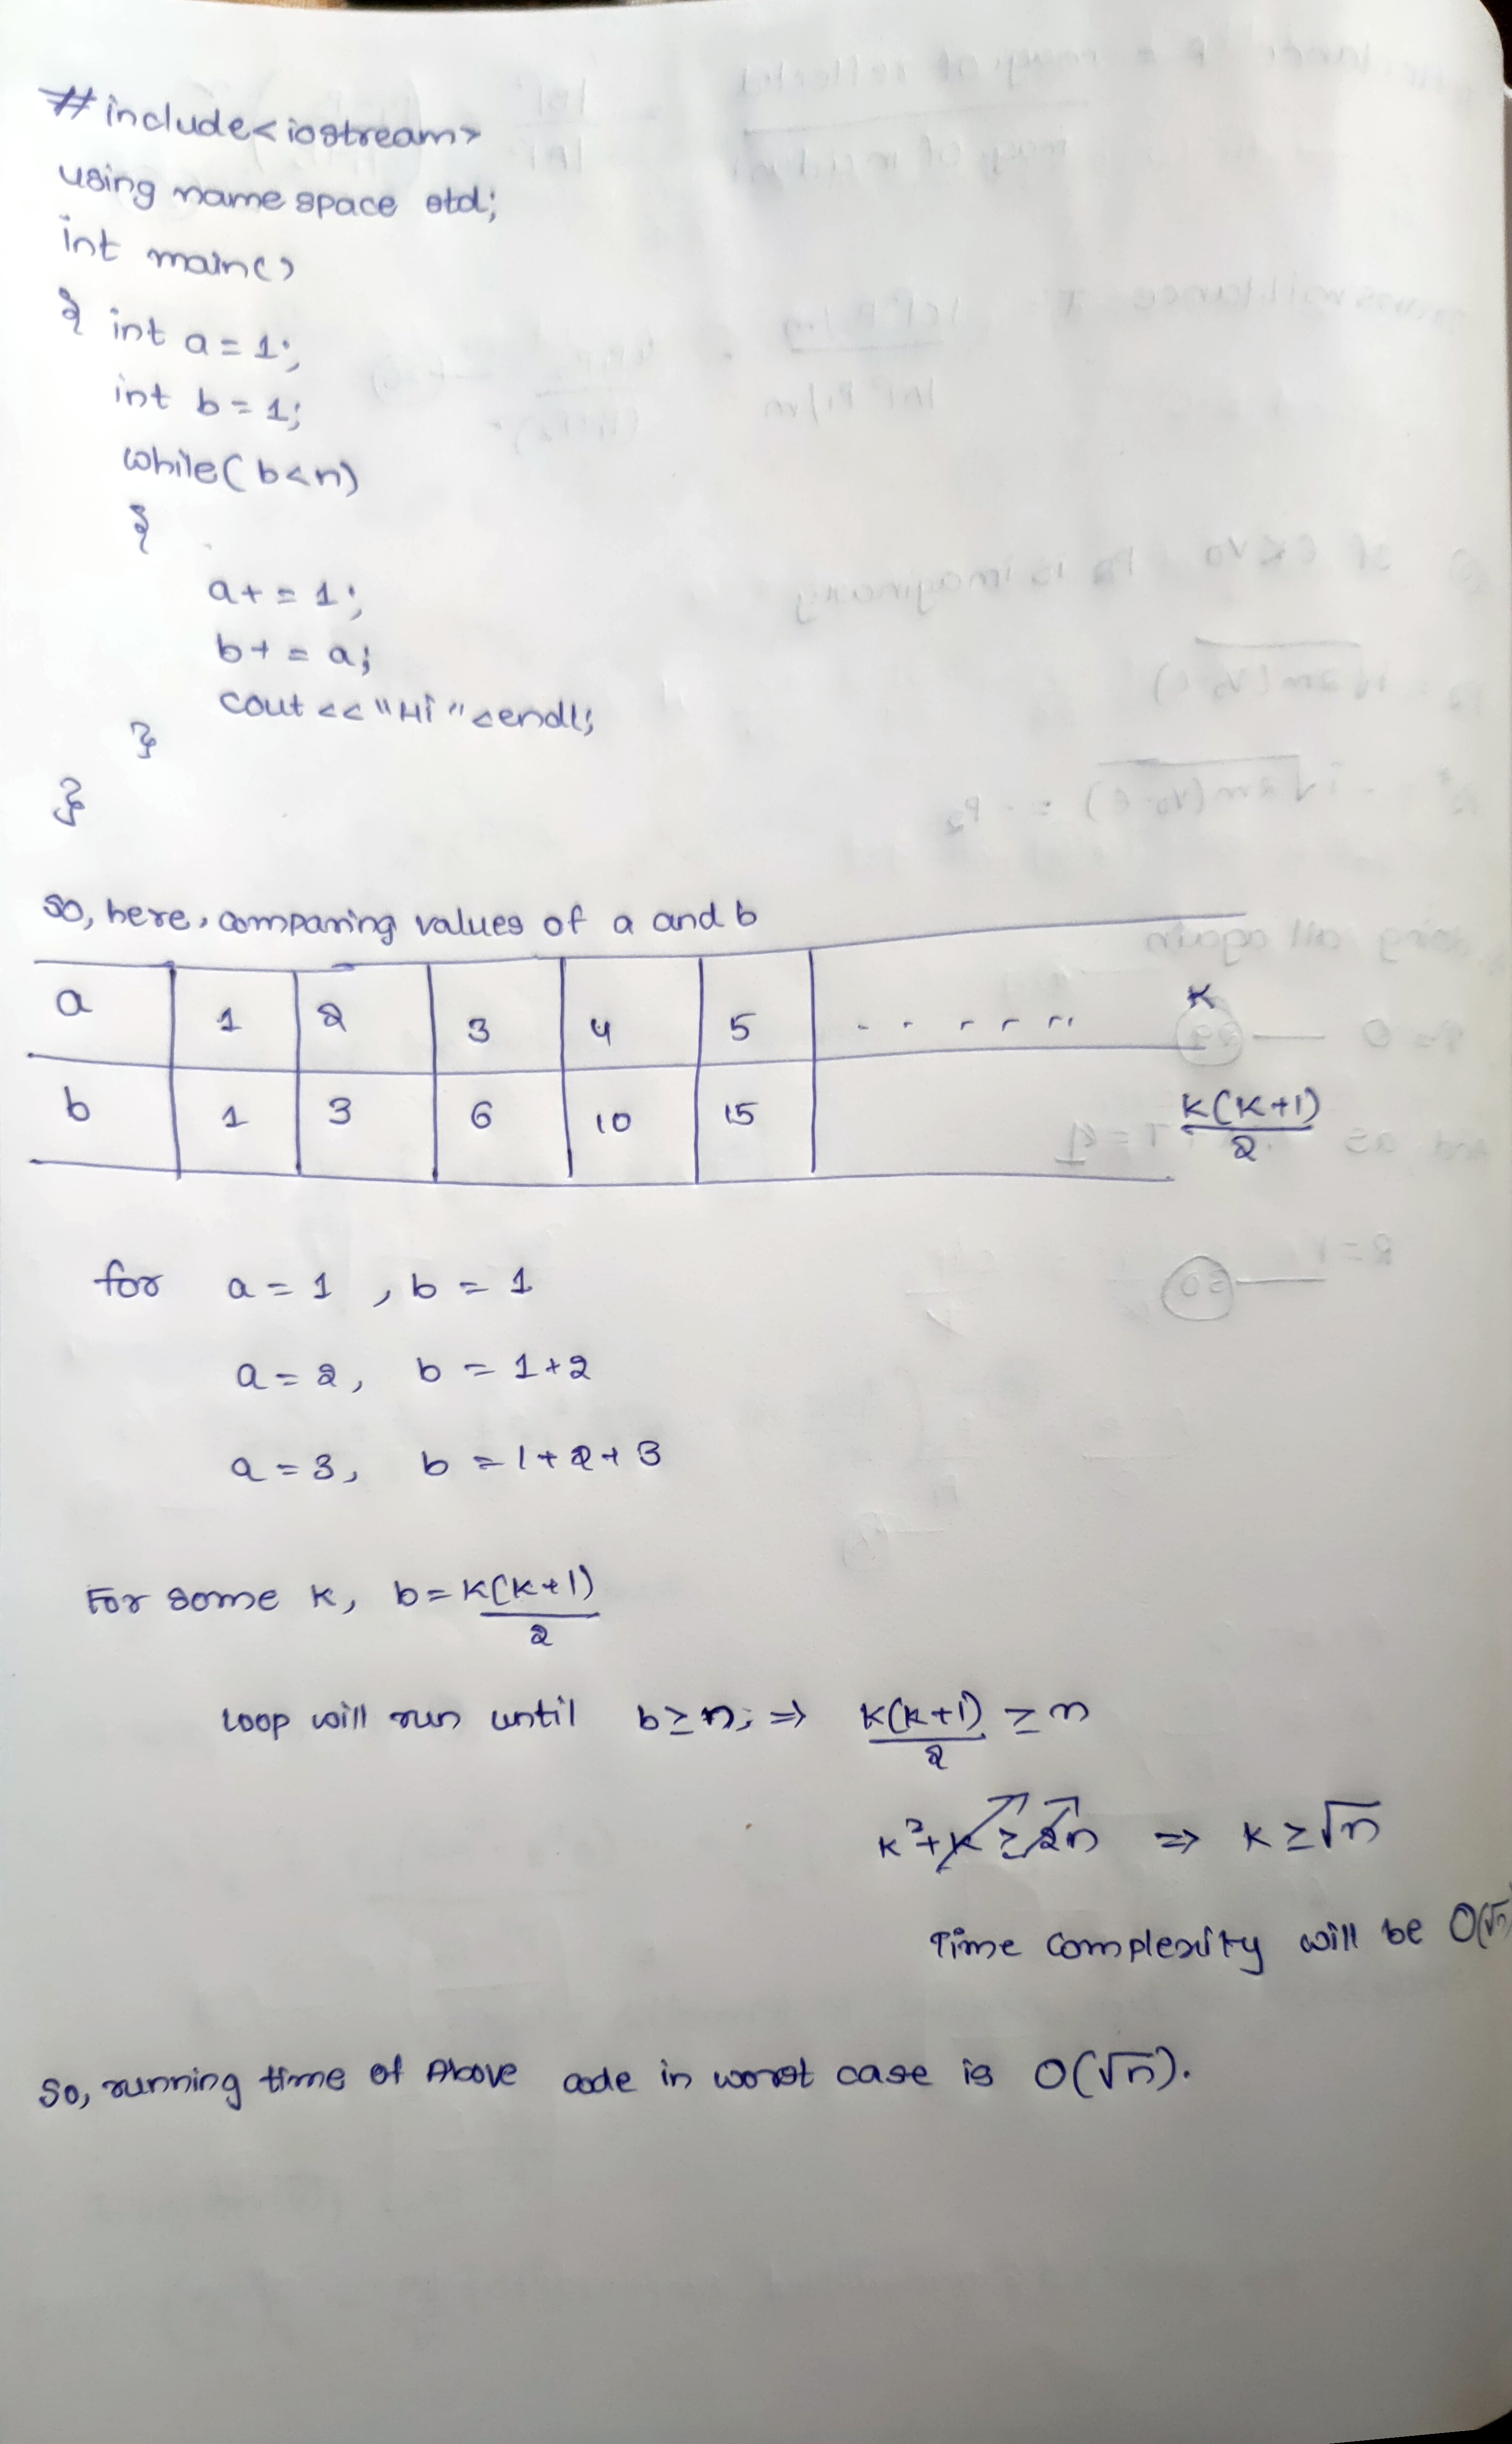 #include<iostream>
using namespace std;
int main()
{ int a = 1;
int b = 1;
while(b<n)
{
a+ = 1;
b+ = a;
cout <<"Hi"<endl;
}
}
So, here, comparing values of a and b
a 1 2 3 4 5 ...... K
b 1 3 6 10 15 K(K+1)/2
for a = 1 , b = 1
a = 2, b = 1+2
a = 3, b = 1+2+3
For some K, b = K(K+1)/2
Loop will run until b ≥ n; ⇒ K(K+1)/2 ≥ n
K²+K ≥ 2n ⇒ K ≥ √n
Time complexity will be O(√n)
So, running time of Above code in worst case is O(√n).